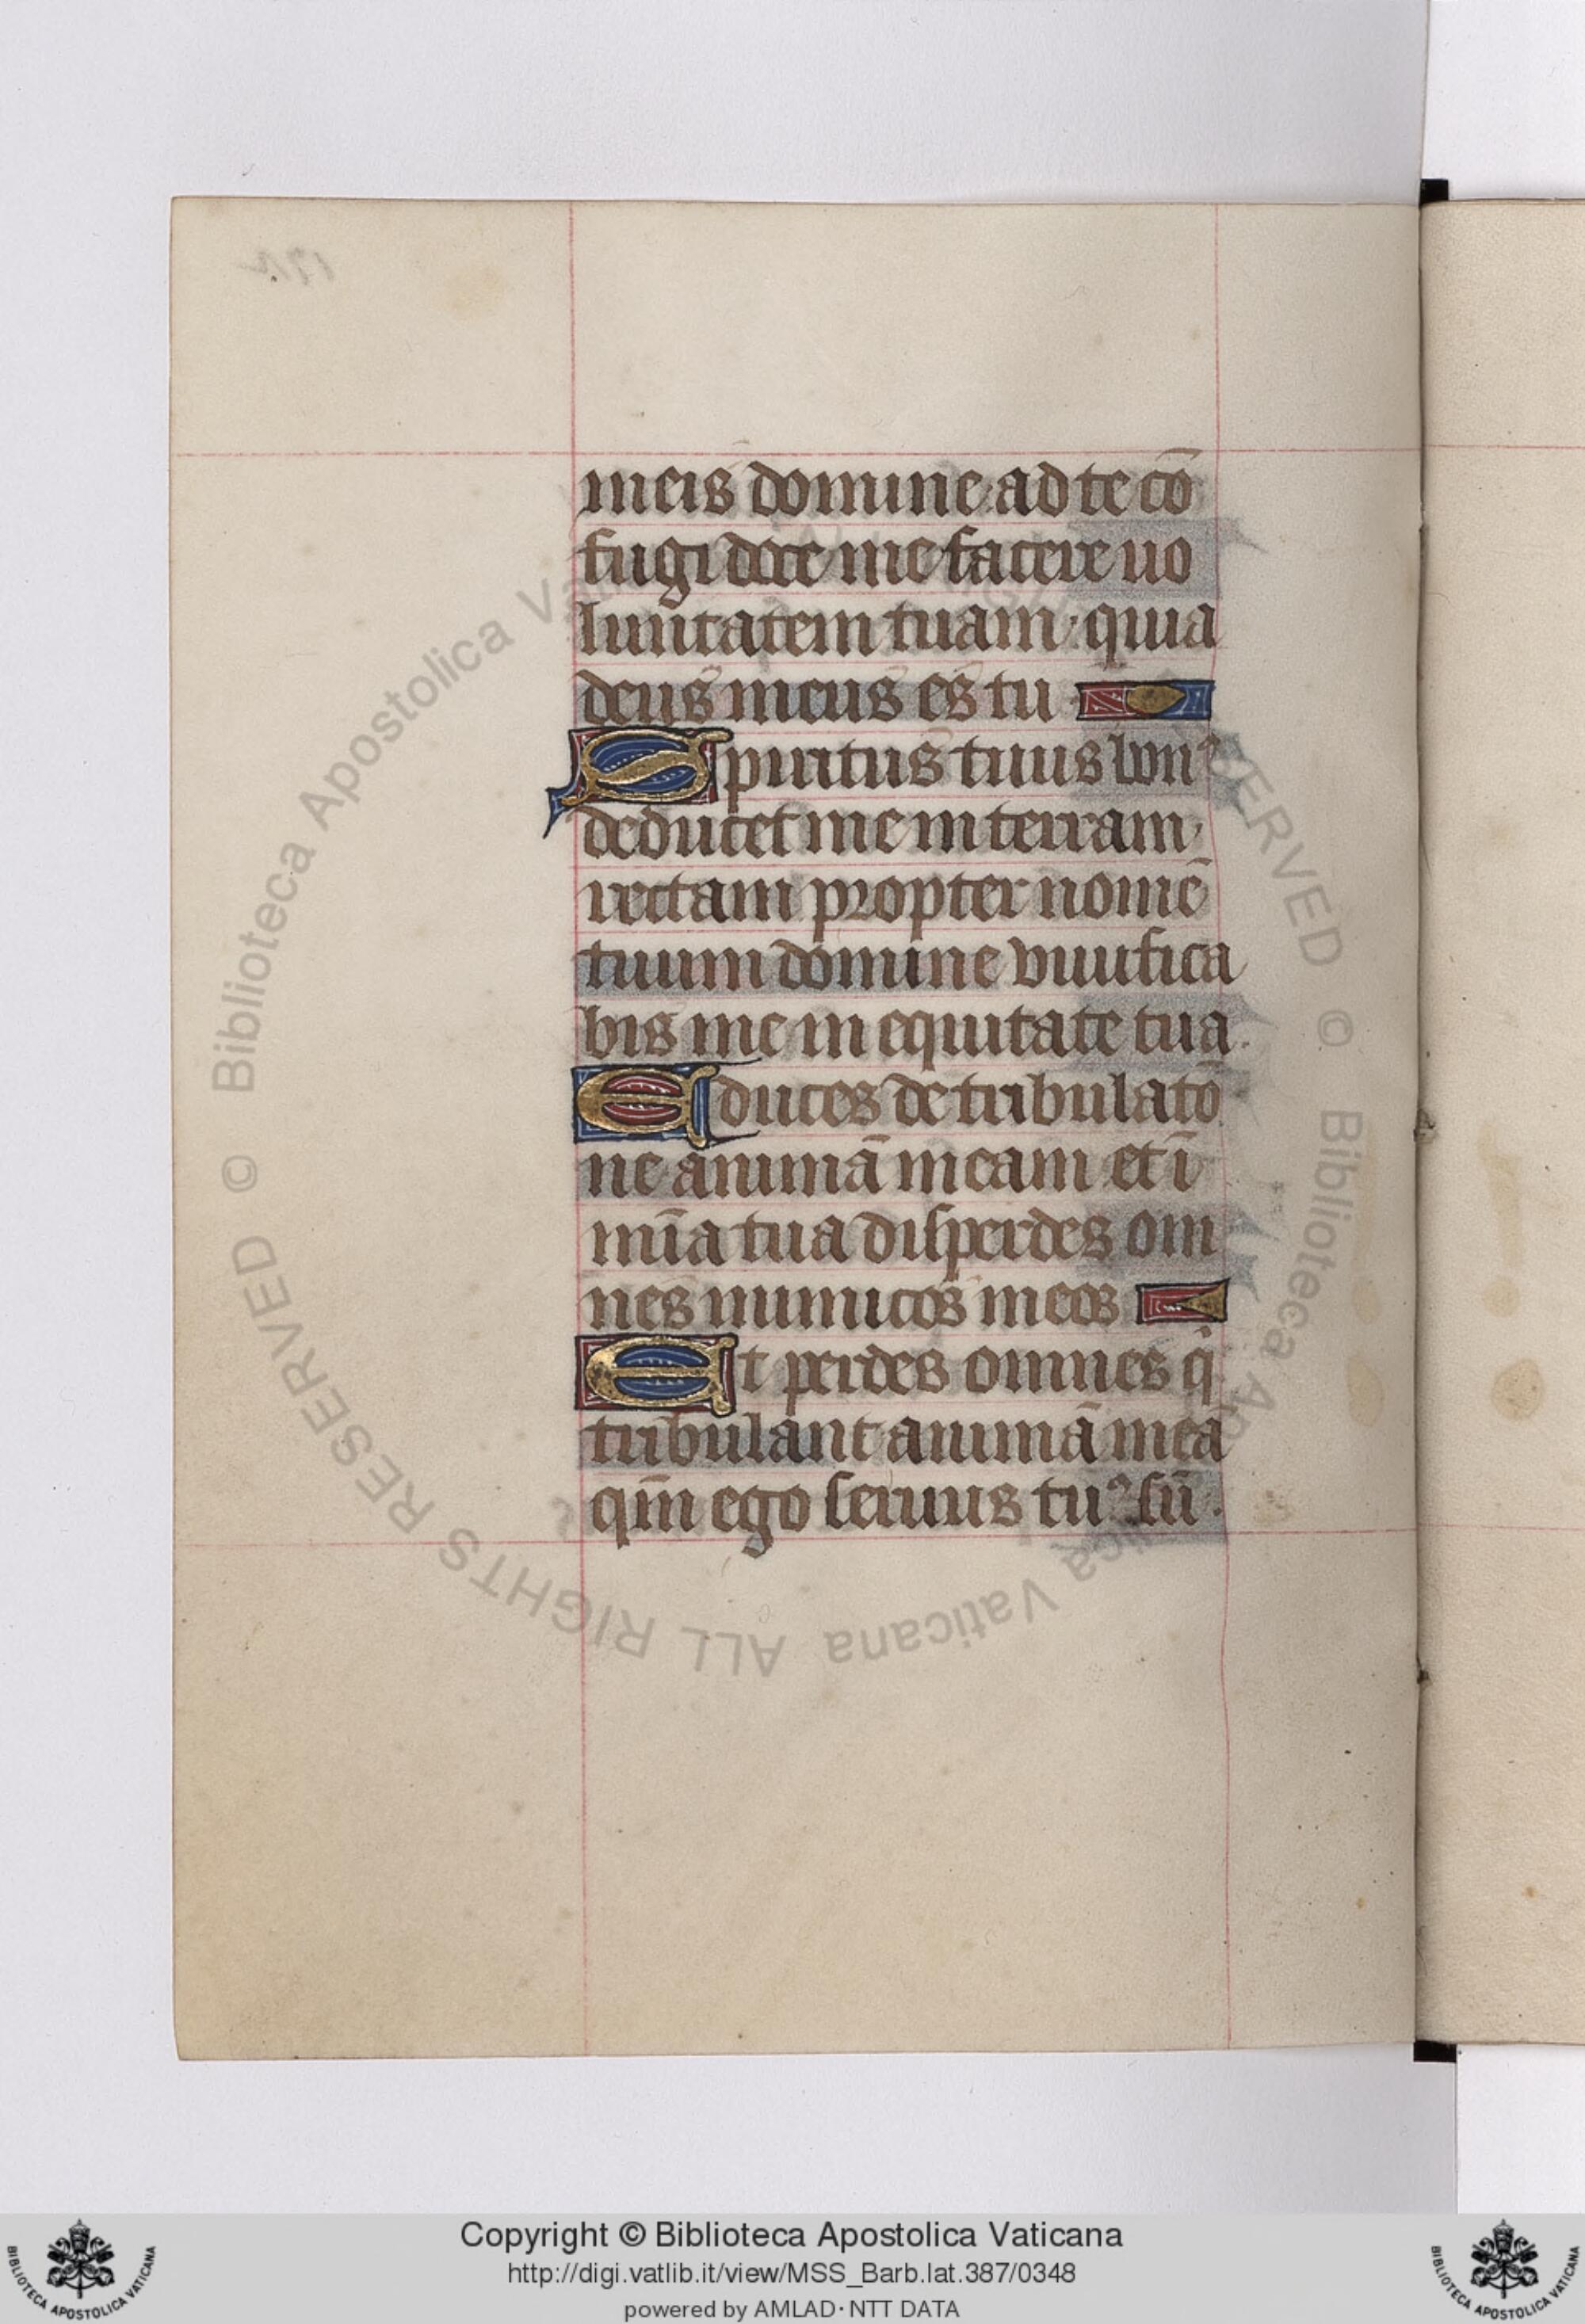 meis domine ad te cō
fugi doce me facere uo
lūtatem tuam · quia
deus meus es tu
Spiritus tuus bonꝰ
deducet me in terram
rectam propter nomē
tuum domine viuifica
bis me in equitate tua.
Educes de tribulatō
ne animā meam et ī
mīa tua disperdes om
nes inimicos meos
Et perdes omnes q̇
tribulant animā meā
qm̄ ego seruus tuꝰ sū .
© Biblioteca Apostolica Vaticana ALL RIGHTS RESERVED © Biblioteca Apostolica Vaticana ALL RIGHTS RESERVED
Copyright © Biblioteca Apostolica Vaticana
http://digi.vatlib.it/view/MSS_Barb.lat.387/0348
powered by AMLAD · NTT DATA
BIBLIOTECA APOSTOLICA VATICANA
BIBLIOTECA APOSTOLICA VATICANA